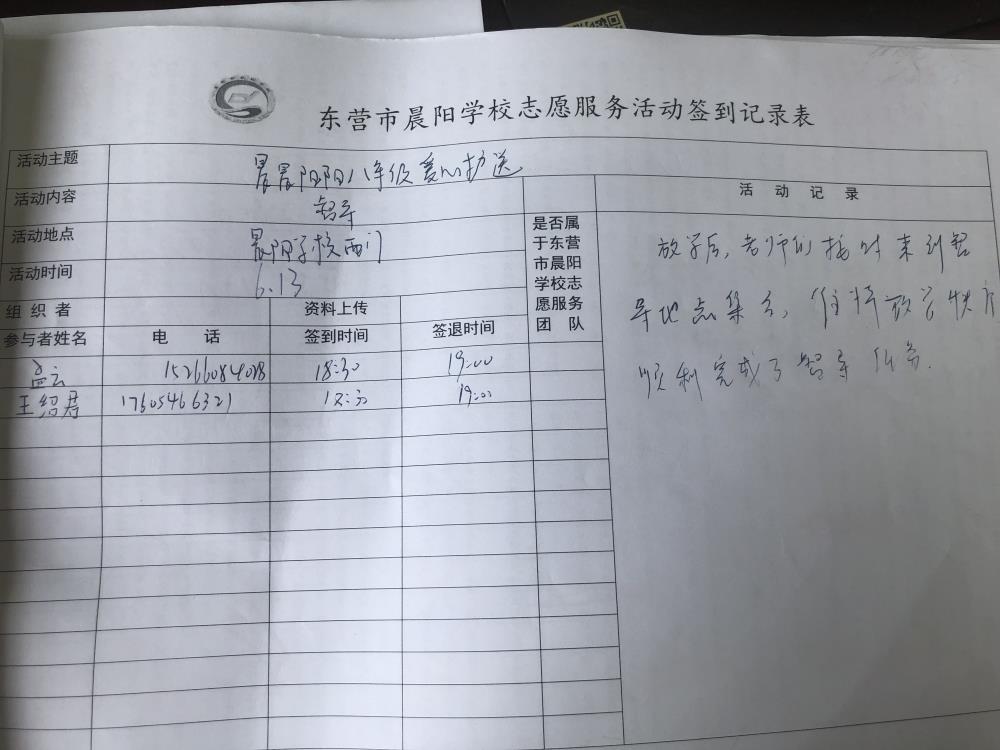 东营市晨阳学校志愿服务活动签到记录表
活动主题 晨晨阳阳八年级爱心护送
活动内容 督导
活动地点 晨阳学校西门
活动时间 6.13
组织者 资料上传
参与者姓名 电话 签到时间 签退时间
是否属
于东营
市晨阳
学校志
愿服务
团队
孟云 15266084028 18:30 19:00
王绍君 17605466321 18:30 19:00
活动记录
放学后,老师们按时来到督
导地点集合,维持放学秩序
顺利完成了督导任务.